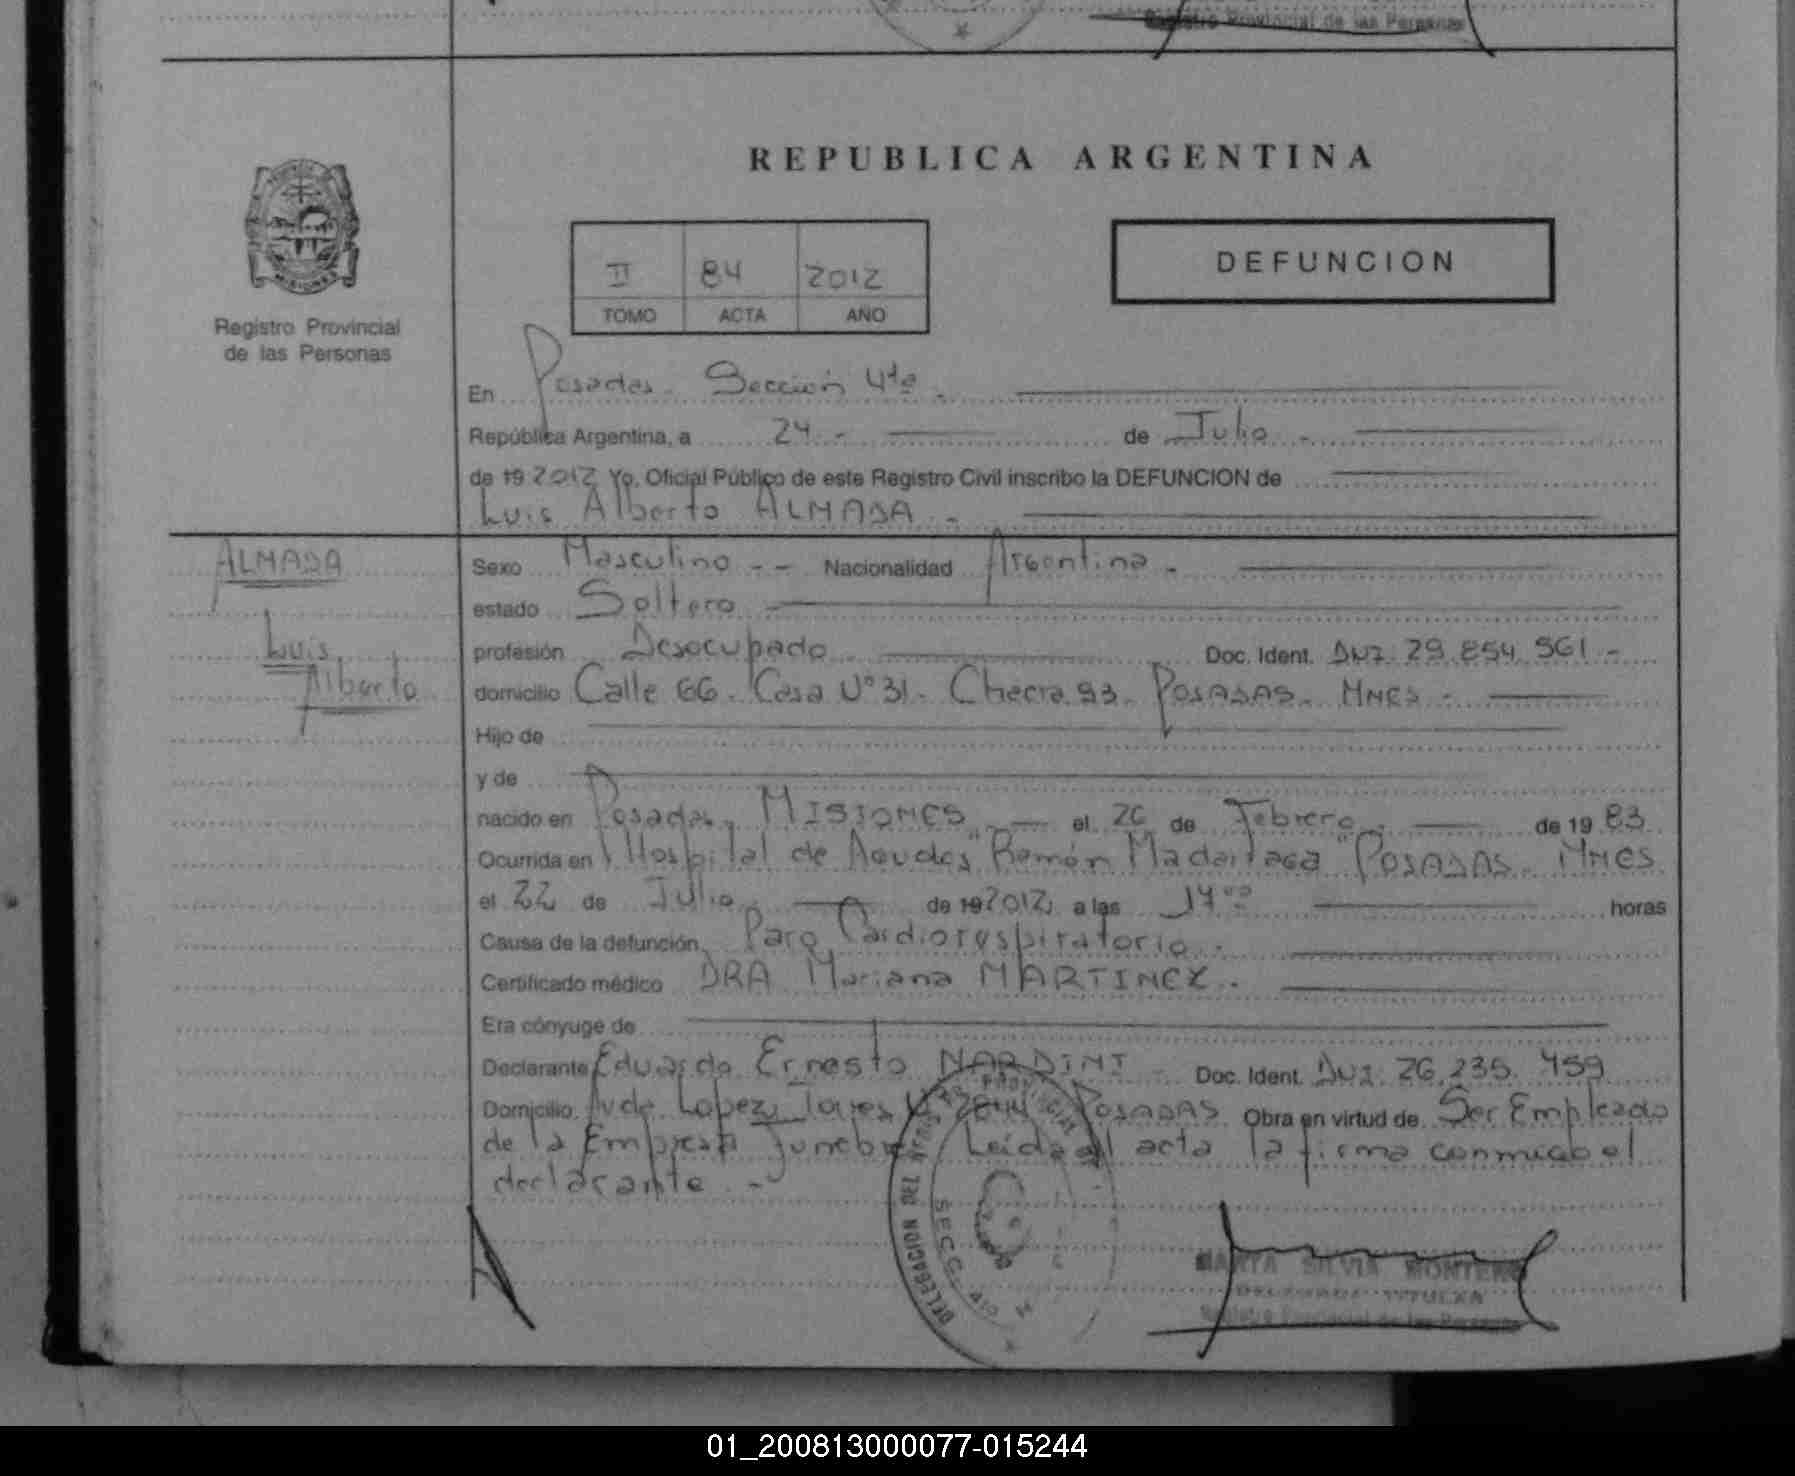 Registro Provincial de las Personas
REPUBLICA ARGENTINA
II 84 2012
TOMO ACTA AÑO
DEFUNCION
MISIONES
Registro Provincial
de las Personas
En Posadas. Sección 4ta.
República Argentina, a 24 - de Julio -
de 19 2012 Yo, Oficial Público de este Registro Civil inscribo la DEFUNCION de
Luis Alberto ALMADA -
ALMADA
Luis
Alberto
Sexo Masculino - - Nacionalidad Argentina -
estado Soltero
profesión Desocupado Doc. Ident. DNI. 29.854.561 -
domicilio Calle 66. Casa Nº 31. Chacra 93. POSADAS. MNES -
Hijo de
y de
nacido en Posadas, MISIONES - el 26 de Febrero - de 19 83
Ocurrida en Hospital de Agudos "Ramón Madariaga" POSADAS. MNES
el 22 de Julio de 19 2012 a las 17 00 horas
Causa de la defunción Paro Cardiorespiratorio.
Certificado médico DRA Mariana MARTINEZ.
Era cónyuge de
Declarante Eduardo Ernesto NARDINI Doc. Ident. DNI. 26.235.459
Domicilio Avda Lopez Torres Nº 2844 POSADAS Obra en virtud de Ser Empleado
de la Empresa Funebre Leída el acta la firma conmigo el
declarante. -
DELEGACION DEL REGISTRO PROVINCIAL
SECC. 4ta
MARTA SILVIA MONTERO
DELEGADA TITULAR
Registro Provincial de las Personas
01_200813000077-015244